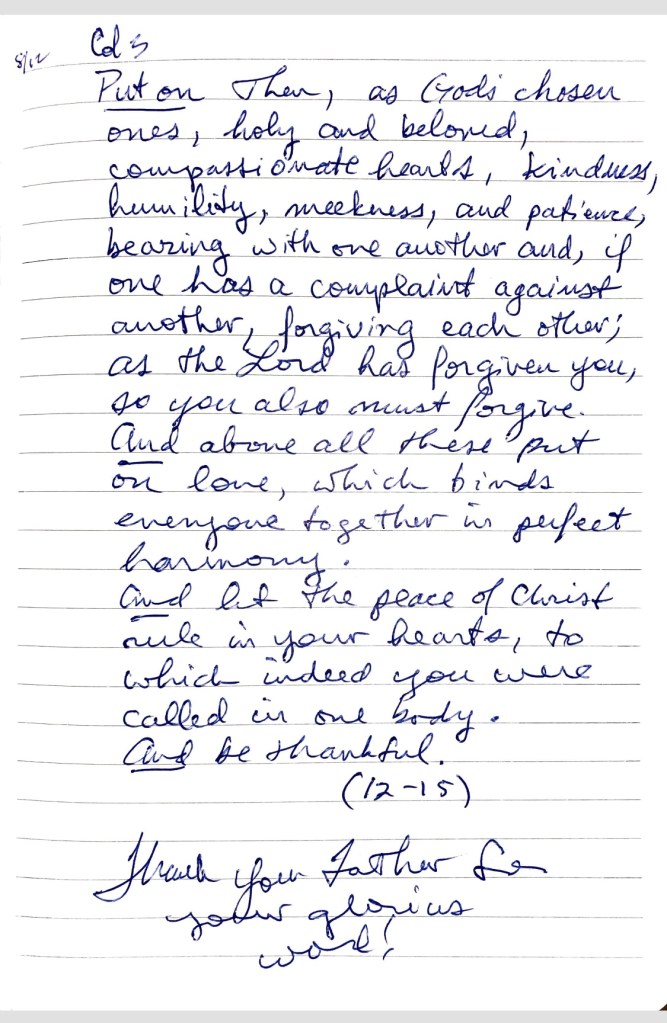 8/12
Col 3
Put on then, as God's chosen
ones, holy and beloved,
compassionate hearts, kindness,
humility, meekness, and patience,
bearing with one another and, if
one has a complaint against
another, forgiving each other;
as the Lord has forgiven you,
so you also must forgive.
And above all these put
on love, which binds
everyone together in perfect
harmony.
And let the peace of Christ
rule in your hearts, to
which indeed you were
called in one body.
And be thankful.
(12-15)
Thank you Father for
your glorius
word!